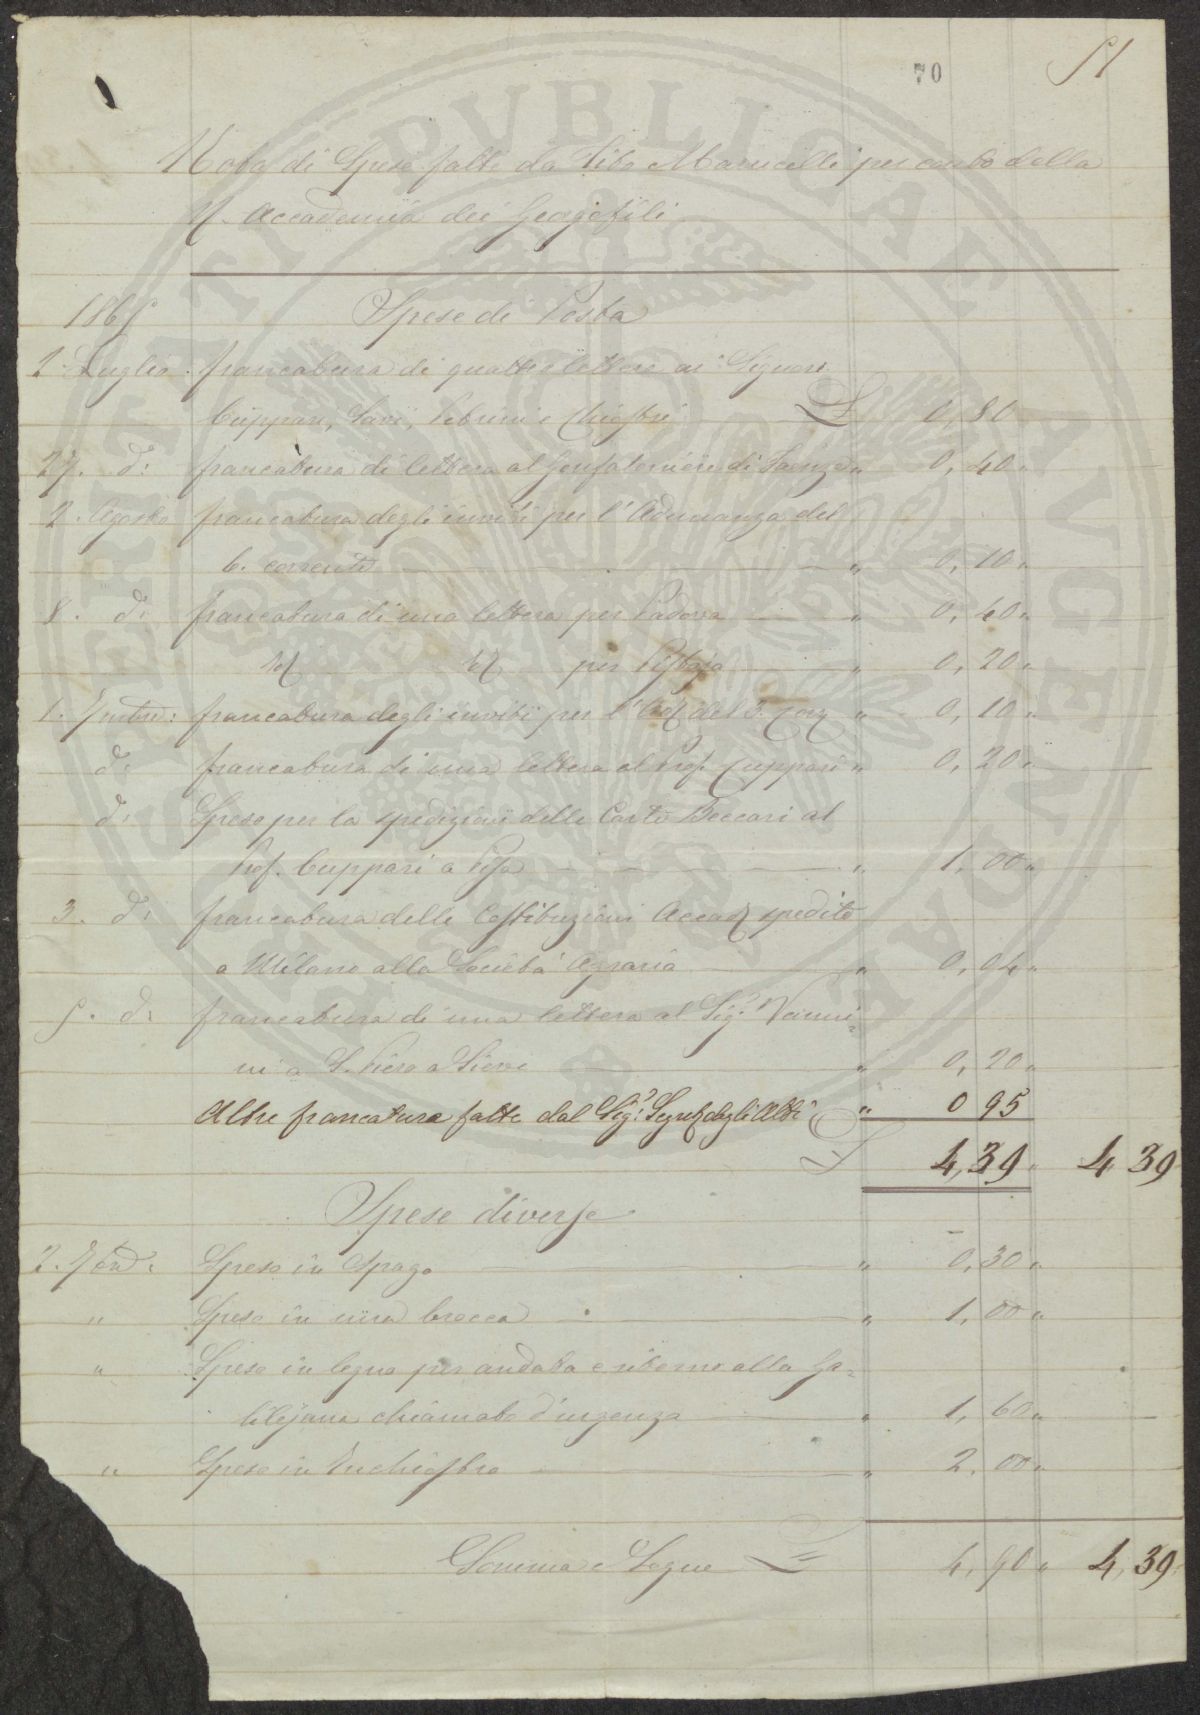 70
51
Nota di Spese fatte da Tito Marucelli per conto della
R. Accademia dei Georgofili
1865
Spese di Posta
1. Luglio francatura di quattro lettere ai Signori
Cuppari, Savi, e Chiostri £ 0,80
27. do: francatura di lettera al Gonfaloniere di Faenza „ 0,40 „
2. Agosto francatura degli inviti per l'Adunanza del
6. corrente „ 0,10 „
8. do: francatura di una lettera per Padova „ 0,40 „
id id per Pistoja „ 0,20 „
1. 7mbre: francatura degli inviti per l'Ad del 3. cor „ 0,10 „
do: francatura di una lettera al Prof. Cuppari „ 0,20 „
do: Spese per la spedizione delle Carte Beccari al
Prof. Cuppari a Pisa „ 1,00 „
3. do: francatura delle Costituzioni Accad spedite
a Milano alla Società Agraria „ 0,04 „
5. do: francatura di una lettera al Sigr Vanni=
ni a S. Piero a Sieve „ 0,20 „
Altre francature fatte dal Sigr Segret degli Atti „ 0 95
£ 4,39 „ 4 39
Spese diverse
2. 7bre: Spesa in Spago „ 0,30 „
„ Spesa in una brocca „ 1,00 „
„ Spesa in legno per andata e ritorno alla Ga=
lilejana chiamato d'urgenza „ 1,60 „
„ Spesa in Inchiostro „ 2,00 „
Somma e Segue £ 4,90 „ 4,39